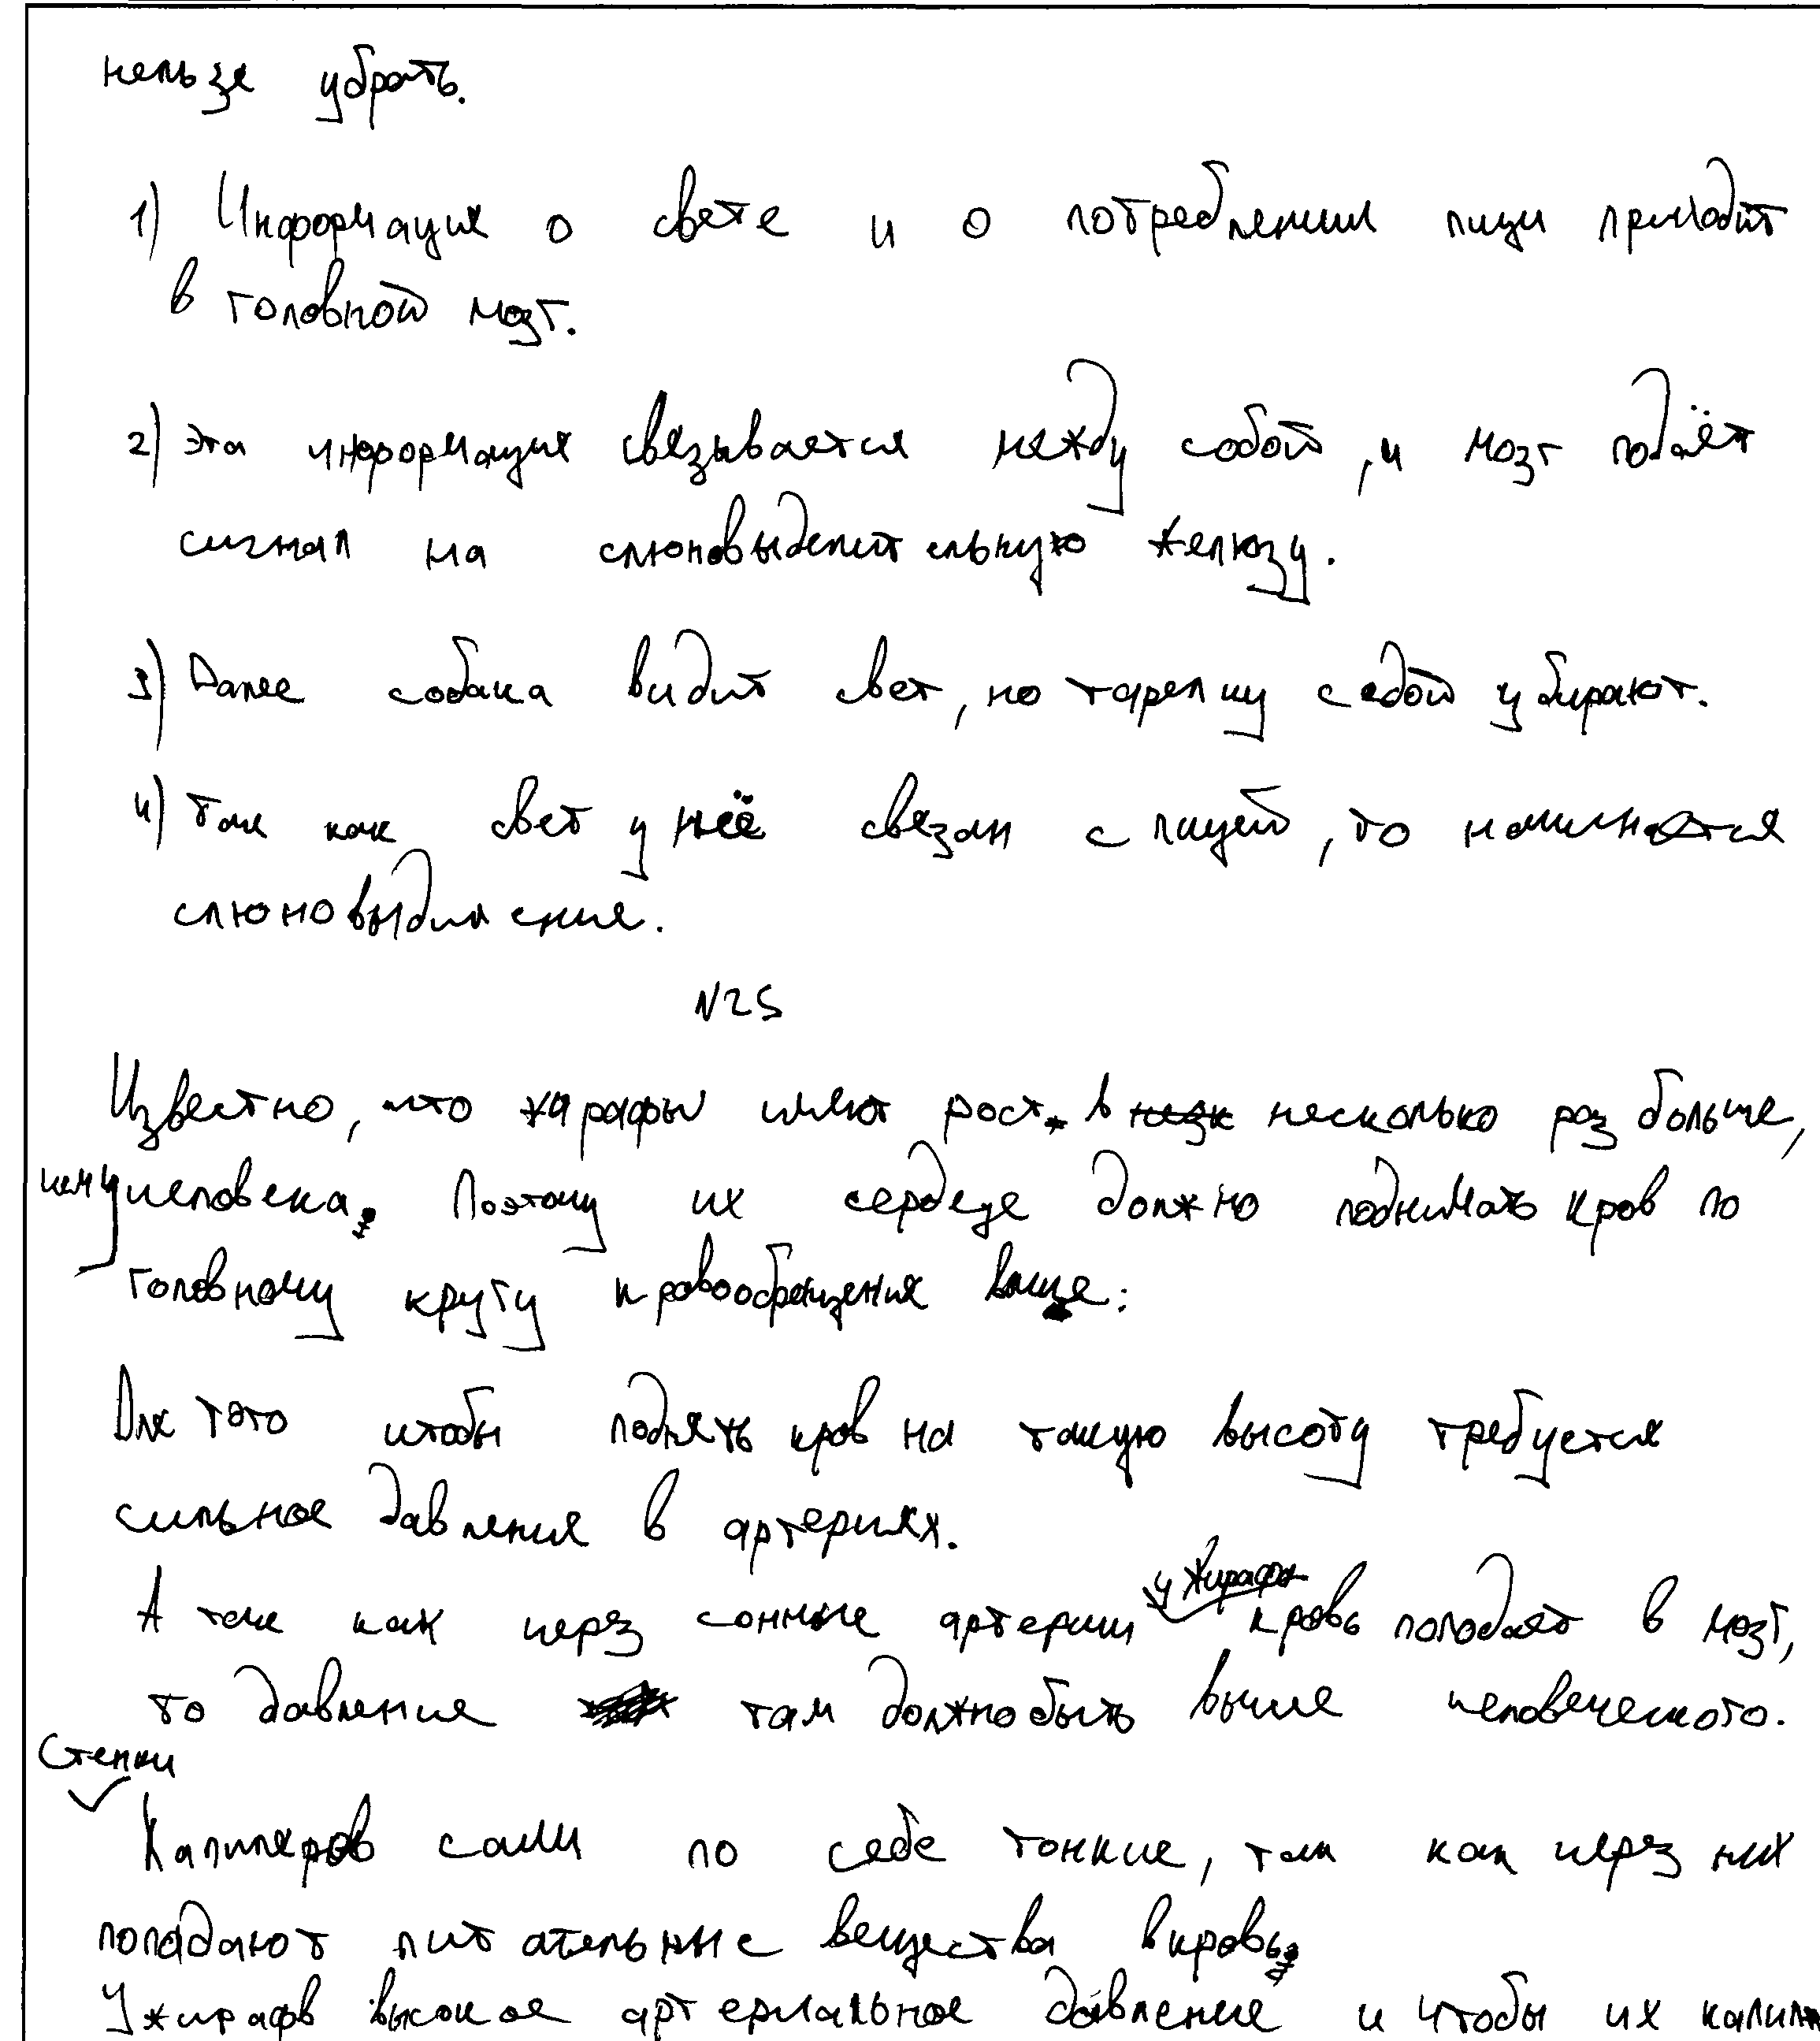 нельзя убрать.
1) Информация о свете и о потреблении пищи приходит
в головной мозг.
2) Эта информация связывается между собой, и мозг подаёт
сигнал на слюновыделительную желюзу.
3) Далее собака видит свет, но тарелку с едой убирают.
4) Так как свет у неё связан с пищей, то начинается
слюновыдиление.
N25
Известно, что жирафы имеют рост в несколько раз больше,
чем у человека. Поэтому их сердеце должно поднимать кров по
головному кругу кровообращения выше:
Для того чтобы поднять кров на такую высоту требуется
сильное давления в артериях.
А так как через сонные артерии у жирафа кровь попадает в мозг,
то давление там должно быть выше человеческого.
Стенки
Капиляров сами по себе тонкие, так как через них
попадают питательные вещества в кровь.
У жирафв высокое артериальное давление и чтобы их капиля